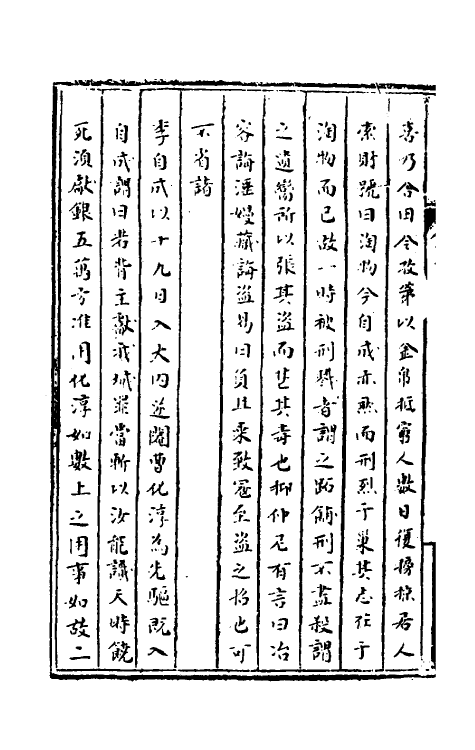 喜乃合田令孜第以金帛抵窮人數日復搒掠居人
索財號曰淘物今自成亦然而刑烈于巢其志在于
淘物而已故一時被刑戮者謂之賂餙刑不盡殺謂
之遺臠所以張其盜而甚其毒也抑仲尼有言曰冶
容誨淫嫚藏誨盜易曰負且乘致寇至盜之招也可
不省諸
李自成以十九日入大內逆閹曹化淳為先驅既入
自成謂曰若背主獻我城罪當斬以汝能識天時饒
死須獻銀五萬方准用化淳如數上之用事如故二